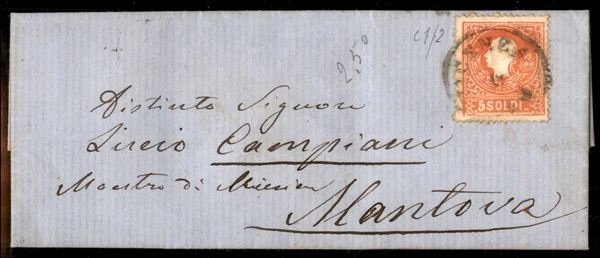 2,50
c1/2
5 SOLDI
Distinto Signore
Lucio Campiani
Maestro di Musica
Mantova